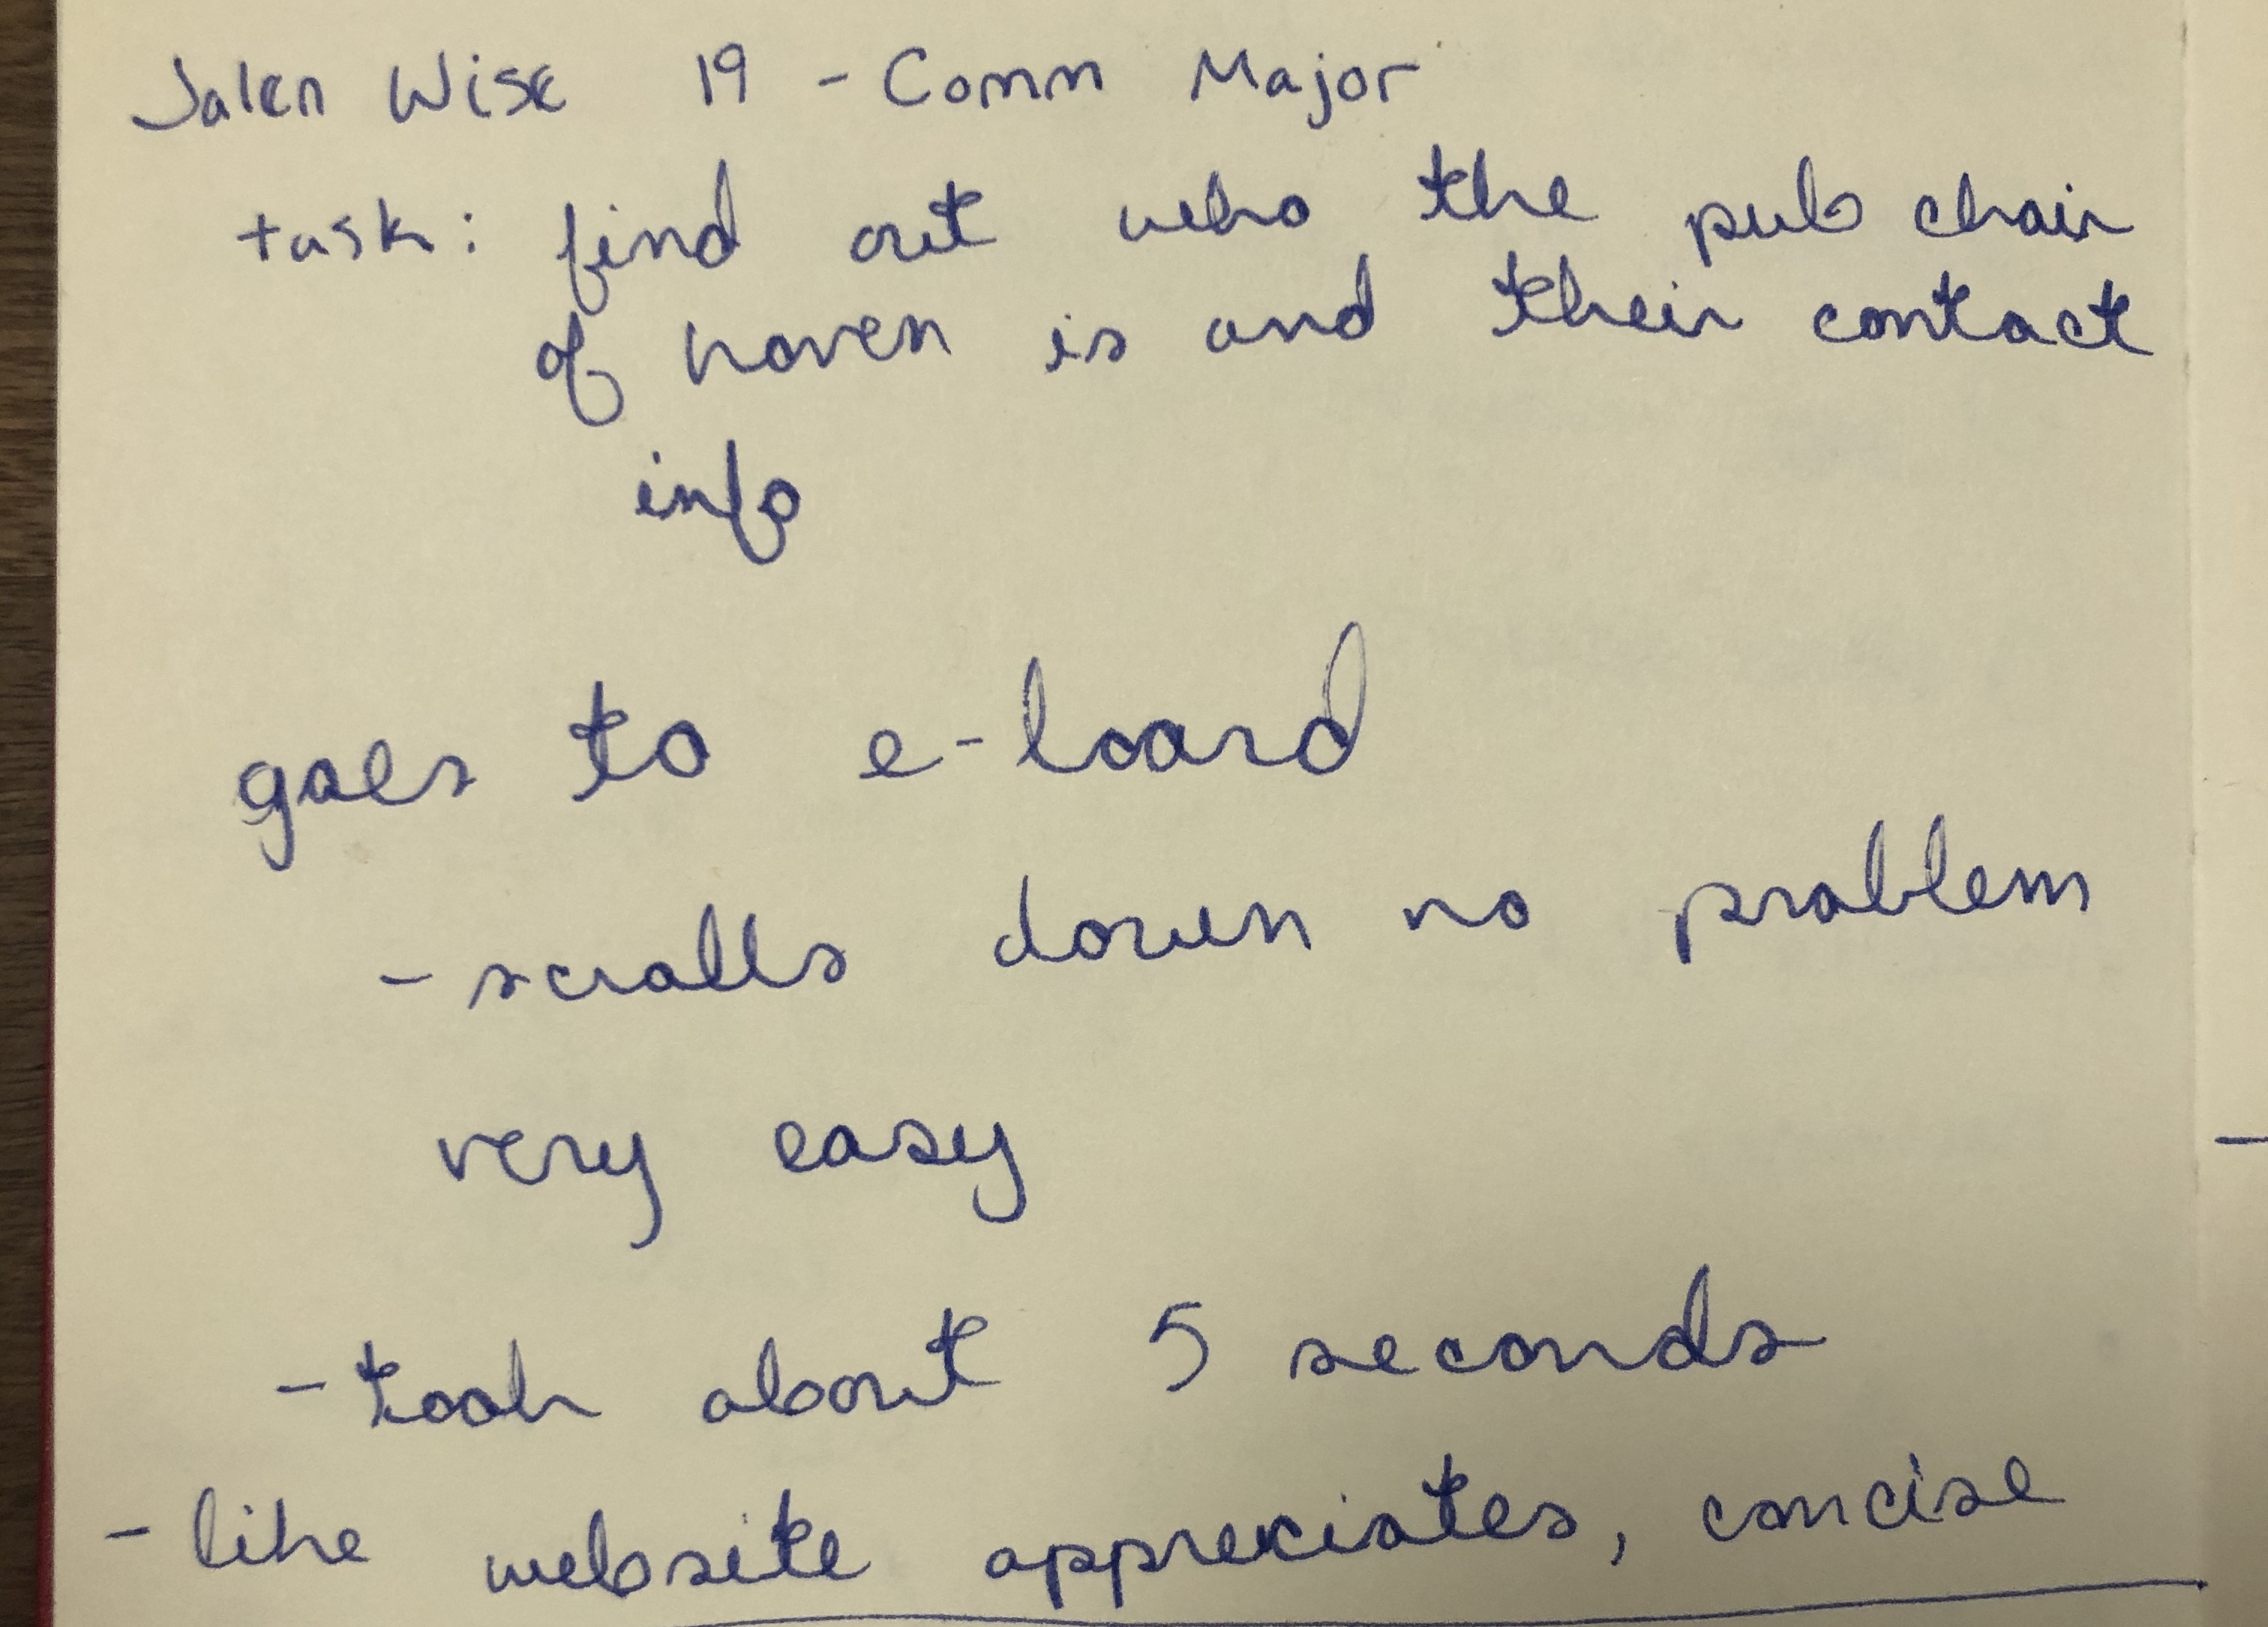 Jalen Wise 19 - Comm Major
task: find out who the pub chair
of haven is and their contact
info
goes to e-board
- scrolls down no problem
very easy
- took about 5 seconds
- like website appreciates, concise